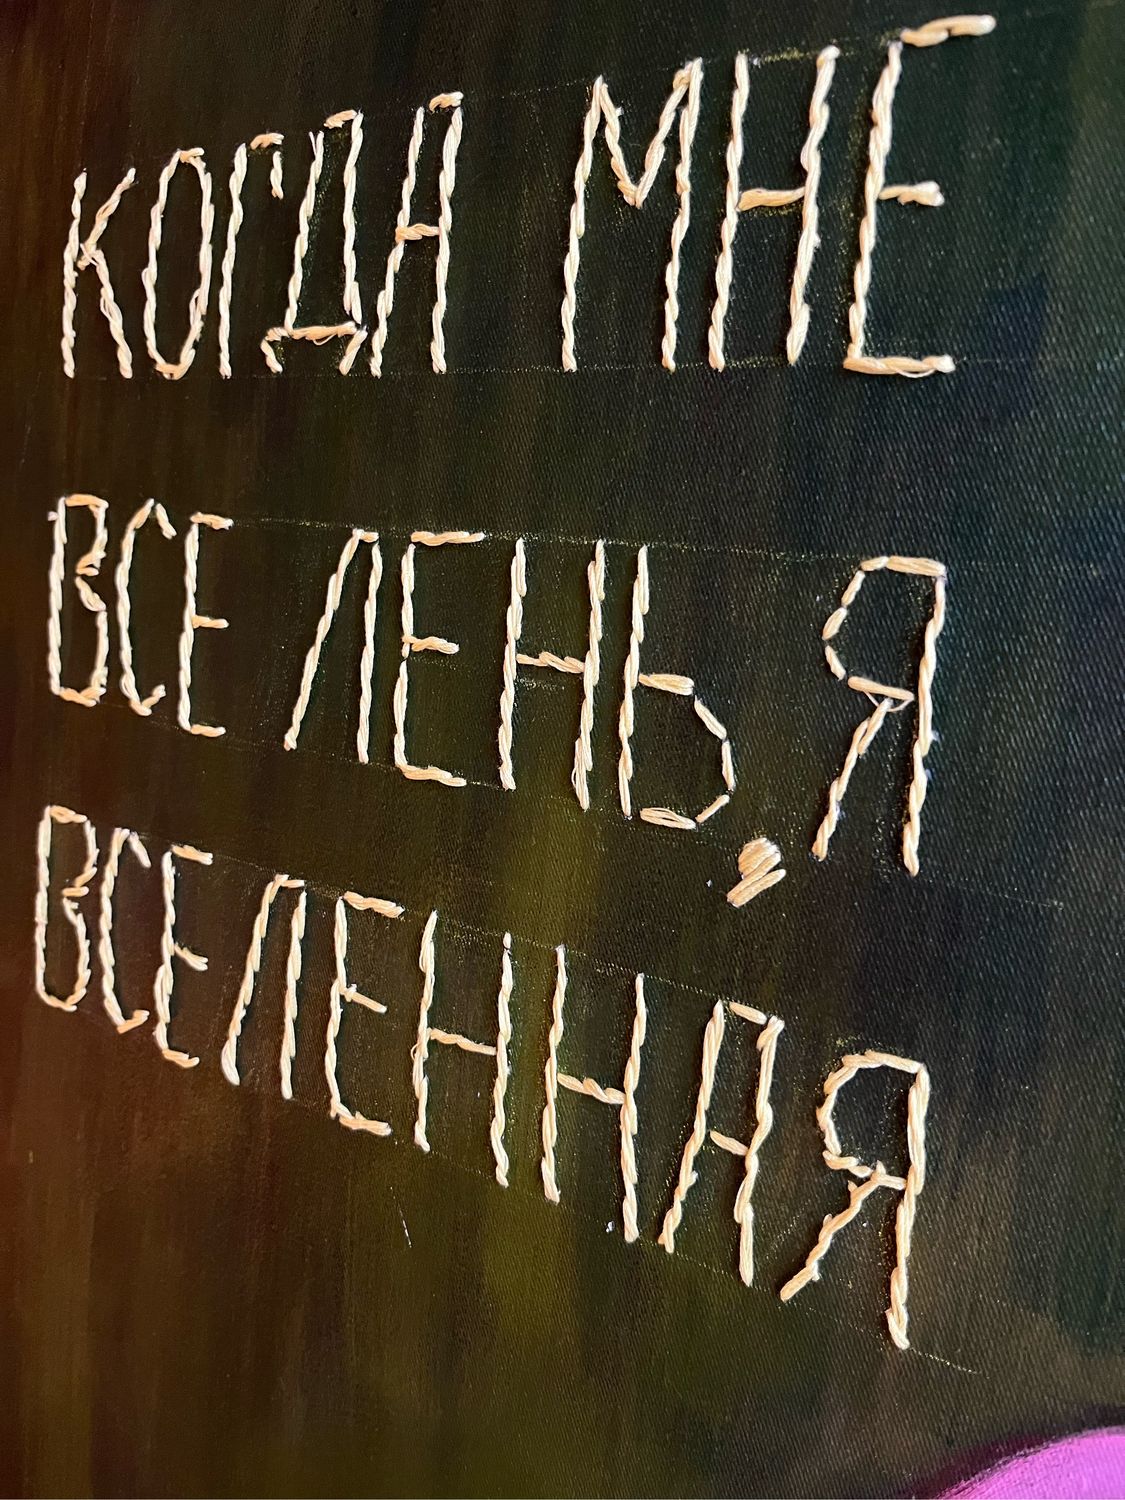 КОГДА МНЕ
ВСЕ ЛЕНЬ, Я
ВСЕЛЕННАЯ